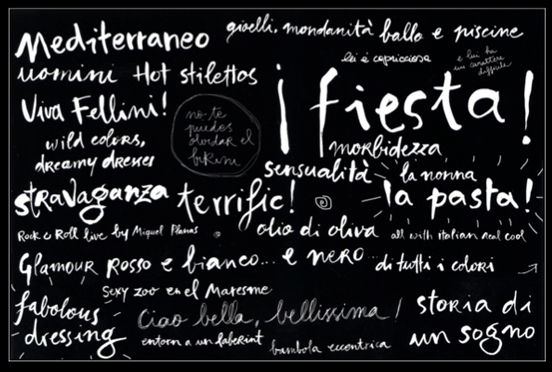 Mediterraneo
gioielli, mondanità ballo e piscine
lei è capricciosa
e lui ha
un carattere
difficile
uomini Hot stilettos
¡fiesta!
Viva Fellini!
no te
puedes
olvidar el
bikini
wild colors,
dreamy dresses
morbidezza
sensualità
la nonna
stravaganza terrific!
la pasta!
Rock & Roll live by Miquel Planas
olio di oliva
all with italian real cool
Glamour Rosso e bianco... e nero...
di tutti i colori
Sexy zoo en el Maresme
fabolous
dressing
Ciao bella, bellissima!
storia di
un sogno
entorn a un laberint
bambola eccentrica